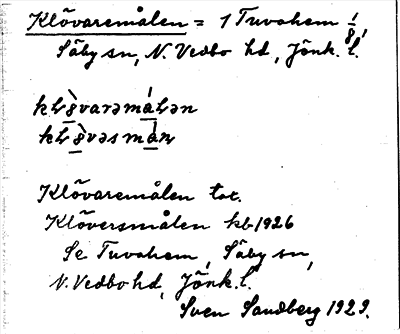 Klövaremålen = 1 Tuvahem 1/8,
Säby sn, N. Vedbo hd, Jönk. l.
Klövaremålen tor.
Klöversmålen kb 1926
Se Tuvahem, Säby sn,
N. Vedbo hd, Jönk. l.
Sven Sandberg 1929.